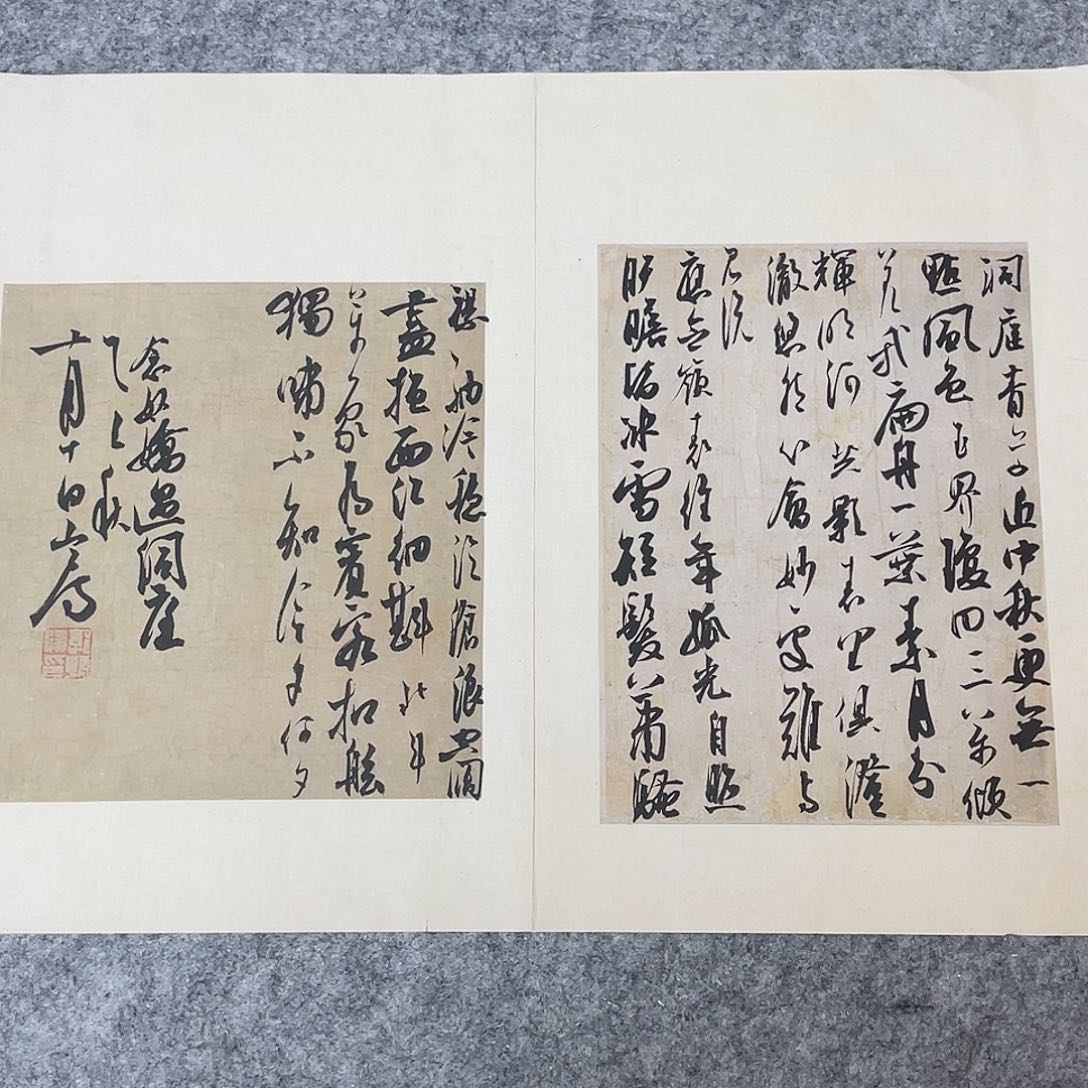 洞庭青草近中秋更無一
點風色玉界瓊田三萬頃
著我扁舟一葉素月分
輝明河共影表里俱澄
澈悠然心會妙處難與
君說
應念嶺表經年孤光自照
肝膽皆冰雪短髮蕭騷
襟袖冷穩泛滄浪空闊
盡挹西江細斟北斗
萬象為賓客扣舷
獨嘯不知今夕何夕
念奴嬌過洞庭
秋
十月十日